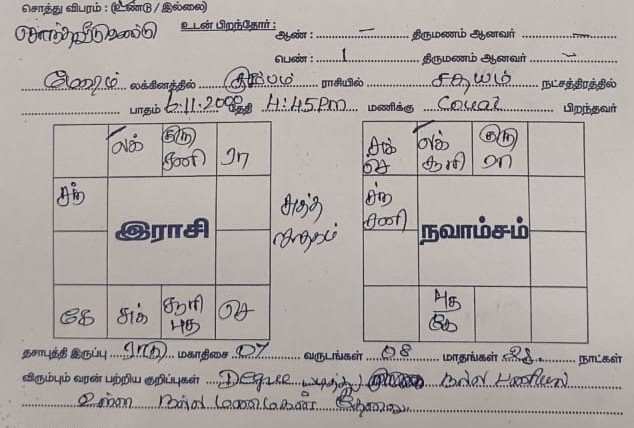 சொத்து விபரம் : (உண்டு / இல்லை)
சொந்த வீடு உண்டு உடன் பிறந்தோர் : ஆண் : – திருமணம் ஆனவர் –
பெண் : 1 திருமணம் ஆனவர் –
மேஷம் லக்கினத்தில் கும்பம் ராசியில் சதயம் நட்சத்திரத்தில்
பாதம் 6.11.2000 தேதி 4:45 PM மணிக்கு கோவை பிறந்தவர்
லக் குரு சனி ரா
சந்
இராசி
கே சுக் சூரி புத செ
சுத்த ஜாதகம்
சுக் செ லக் சூரி குரு ரா
சந் சனி
நவாம்சம்
புத கே
தசாபுத்தி இருப்பு ராகு மகாதிசை 07 வருடங்கள் 08 மாதங்கள் நாட்கள்
விரும்பும் வரன் பற்றிய குறிப்புகள் Degree படித்து நல்ல பணியில்
உள்ள நல்ல மணமகன் தேவை